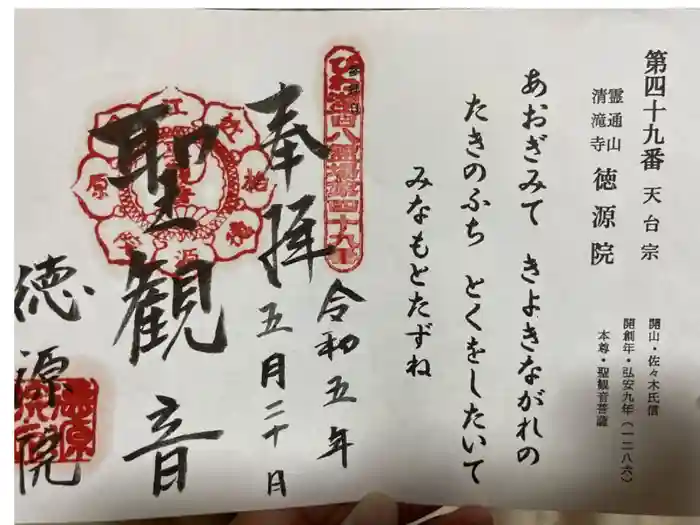 第四十九番 天台宗
霊通山
清滝寺 徳源院
開山・佐々木氏信
開創年・弘安九年(一二八六)
本尊・聖観音菩薩
あおぎみて きよきながれの
たきのふち とくをしたいて
みなもとたずね
奉拝
令和五年
五月二十日
聖観音
徳源院